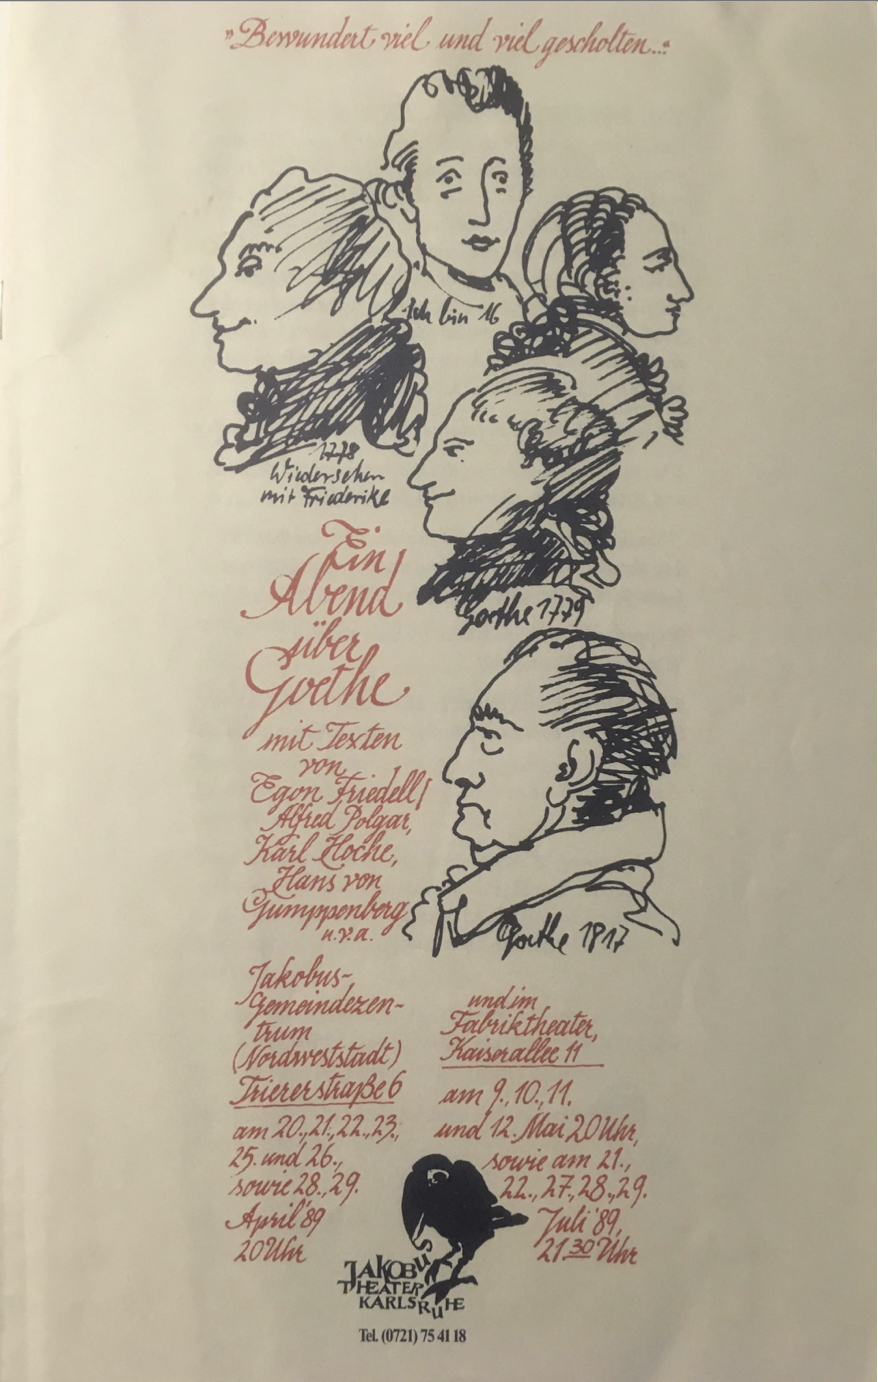 »Bewundert viel und viel gescholten...«
Ich bin 16
1778
Wiedersehen
mit Friederike
Goethe 1779
Ein
Abend
über
Goethe
mit Texten
von
Egon Friedell/
Alfred Polgar,
Karl Hoche,
Hans von
Gumppenberg
u.v.a.
Goethe 1817
Jakobus-
Gemeindezen-
trum
(Nordweststadt)
Triererstraße 6
am 20., 21., 22., 23.,
25. und 26.,
sowie 28., 29.
April '89
20 Uhr
und im
Fabriktheater,
Kaiserallee 11
am 9., 10., 11.
und 12. Mai 20 Uhr,
sowie am 21.,
22., 27., 28., 29.
Juli '89,
21 30 Uhr
JAKOBUS
THEATER
KARLSRUHE
Tel. (0721) 75 41 18